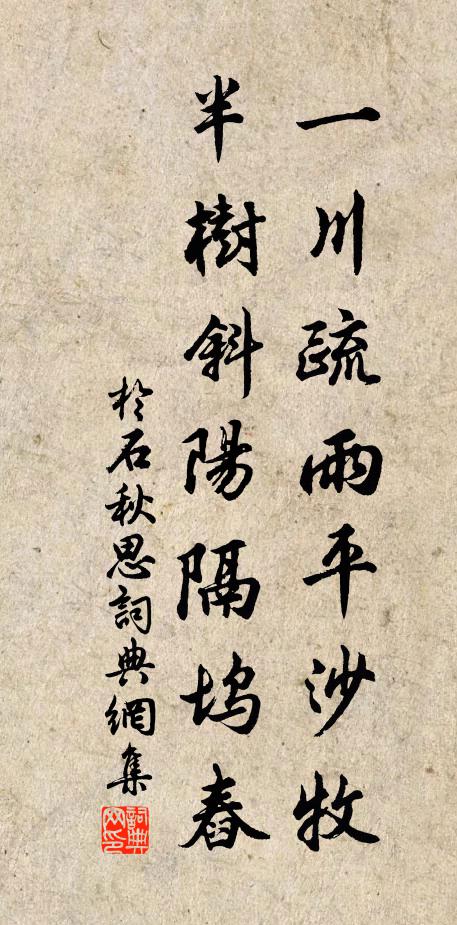 一川疏雨平沙牧
半樹斜陽隔塢舂
於石秋思詞典網集
詞典網印